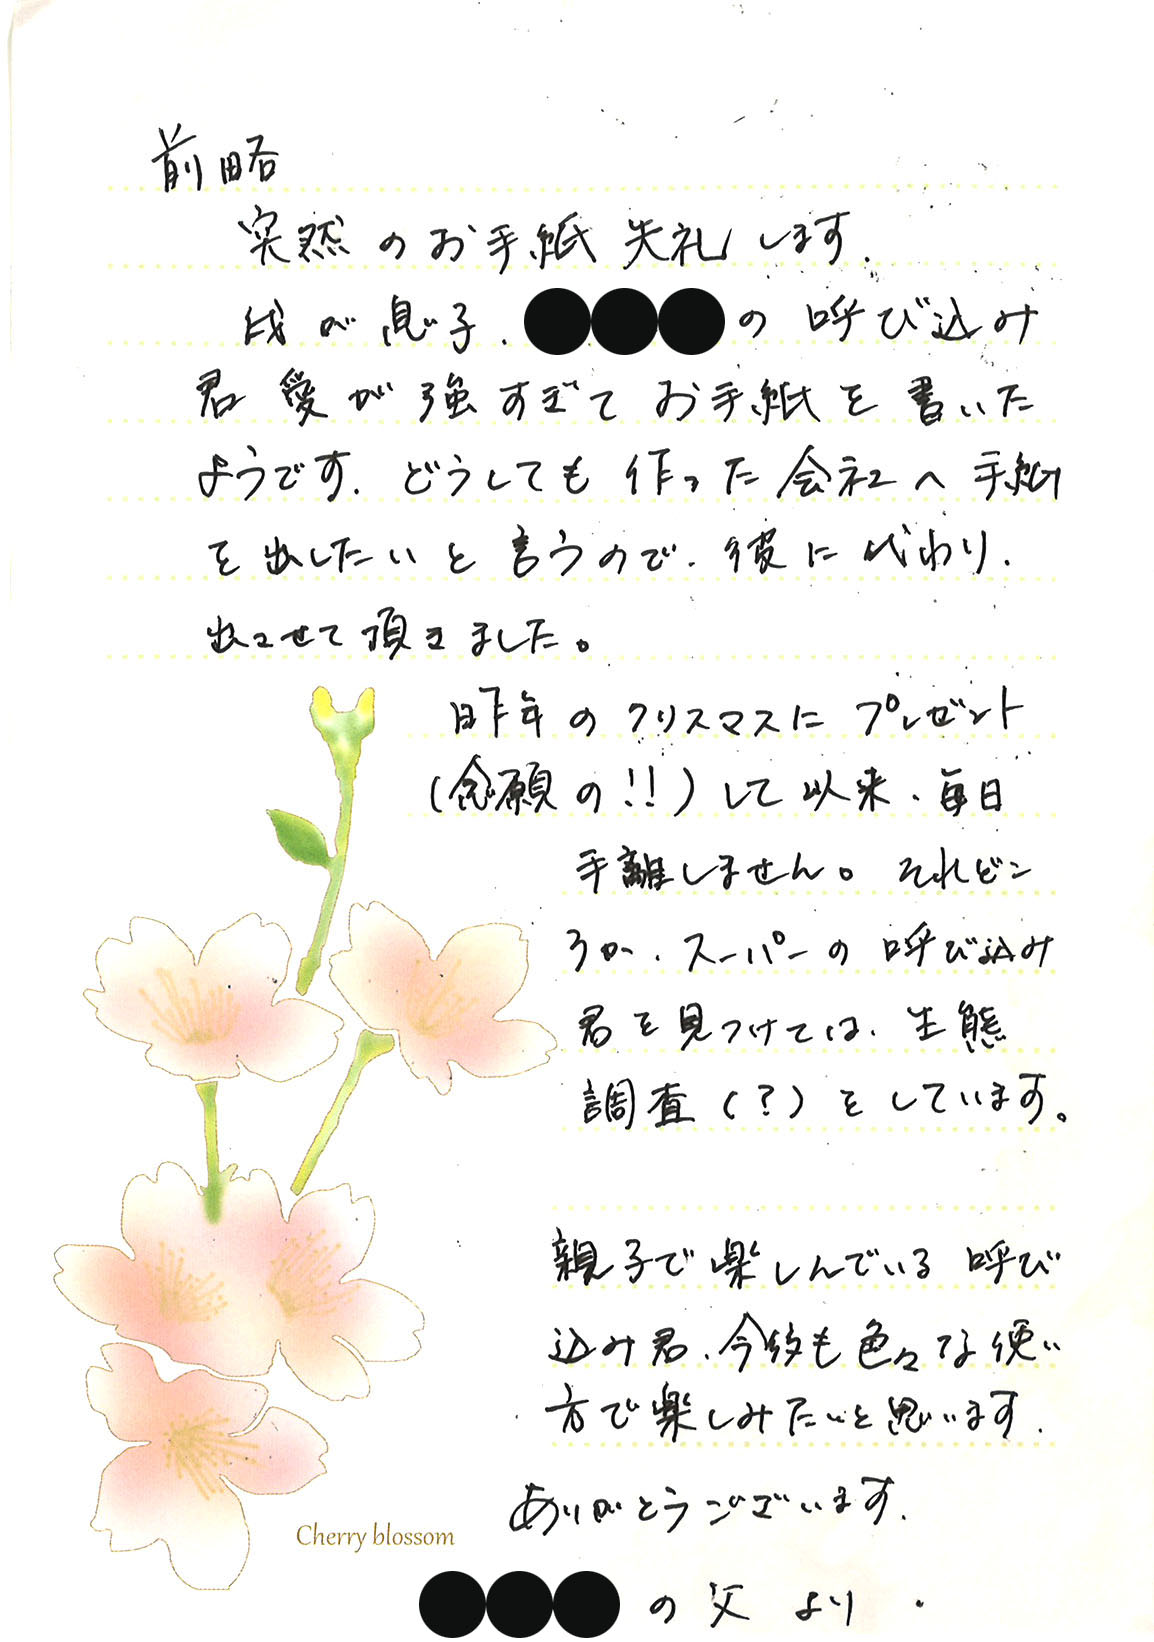 前略
突然のお手紙失礼します.
我が息子.●●●の呼び込み
君愛が強すぎてお手紙を書いた
ようです.どうしても作った会社へ手紙
を出したいと言うので.彼に代わり.
出させて頂きました。
昨年のクリスマスにプレゼント
(念願の!!)して以来.毎日
手離しません。それどこ
ろか.スーパーの呼び込み
君を見つけては.生態
調査(?)をしています。
親子で楽しんでいる呼び
込み君.今後も色々な使い
方で楽しみたいと思います.
ありがとうございます.
Cherry blossom
●●●の父より.